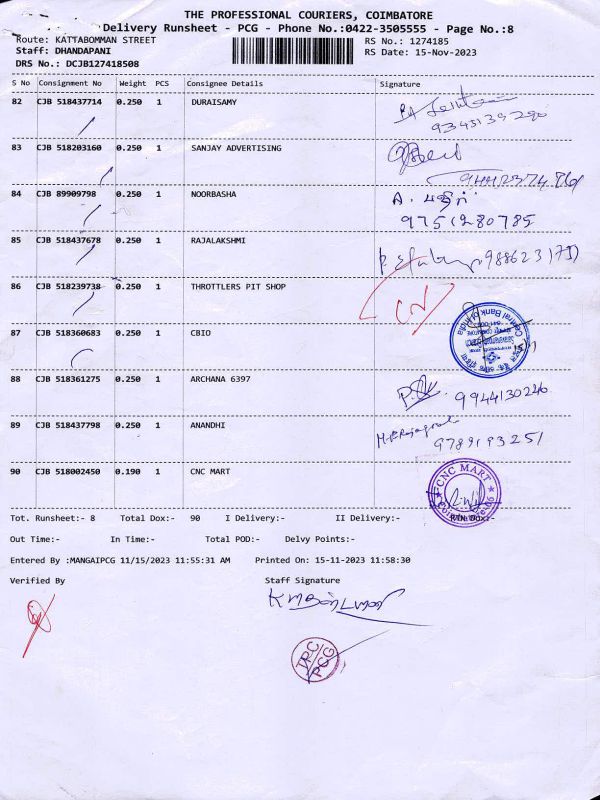 THE PROFESSIONAL COURIERS, COIMBATORE
Delivery Runsheet - PCG - Phone No.:0422-3505555 - Page No.:8
Route: KATTABOMMAN STREET
RS No.: 1274185
Staff: DHANDAPANI
RS Date: 15-Nov-2023
DRS No.: DCJB127418508
S No Consignment No Weight PCS Consignee Details Signature
82 CJB 518437714 0.250 1 DURAISAMY
83 CJB 518203160 0.250 1 SANJAY ADVERTISING
84 CJB 89909798 0.250 1 NOORBASHA
9751280785
85 CJB 518437678 0.250 1 RAJALAKSHMI
86 CJB 518239738 0.250 1 THROTTLERS PIT SHOP
87 CJB 518360683 0.250 1 CBIO
Central Bank of India
88 CJB 518361275 0.250 1 ARCHANA 6397
9944130246
89 CJB 518437798 0.250 1 ANANDHI
9789193251
90 CJB 518002450 0.190 1 CNC MART
CNC MART
Tot. Runsheet:- 8 Total Dox:- 90 I Delivery:- II Delivery:-
Out Time:- In Time:- Total POD:- Delvy Points:-
Entered By :MANGAIPCG 11/15/2023 11:55:31 AM Printed On: 15-11-2023 11:58:30
Verified By Staff Signature
TPC
PCG